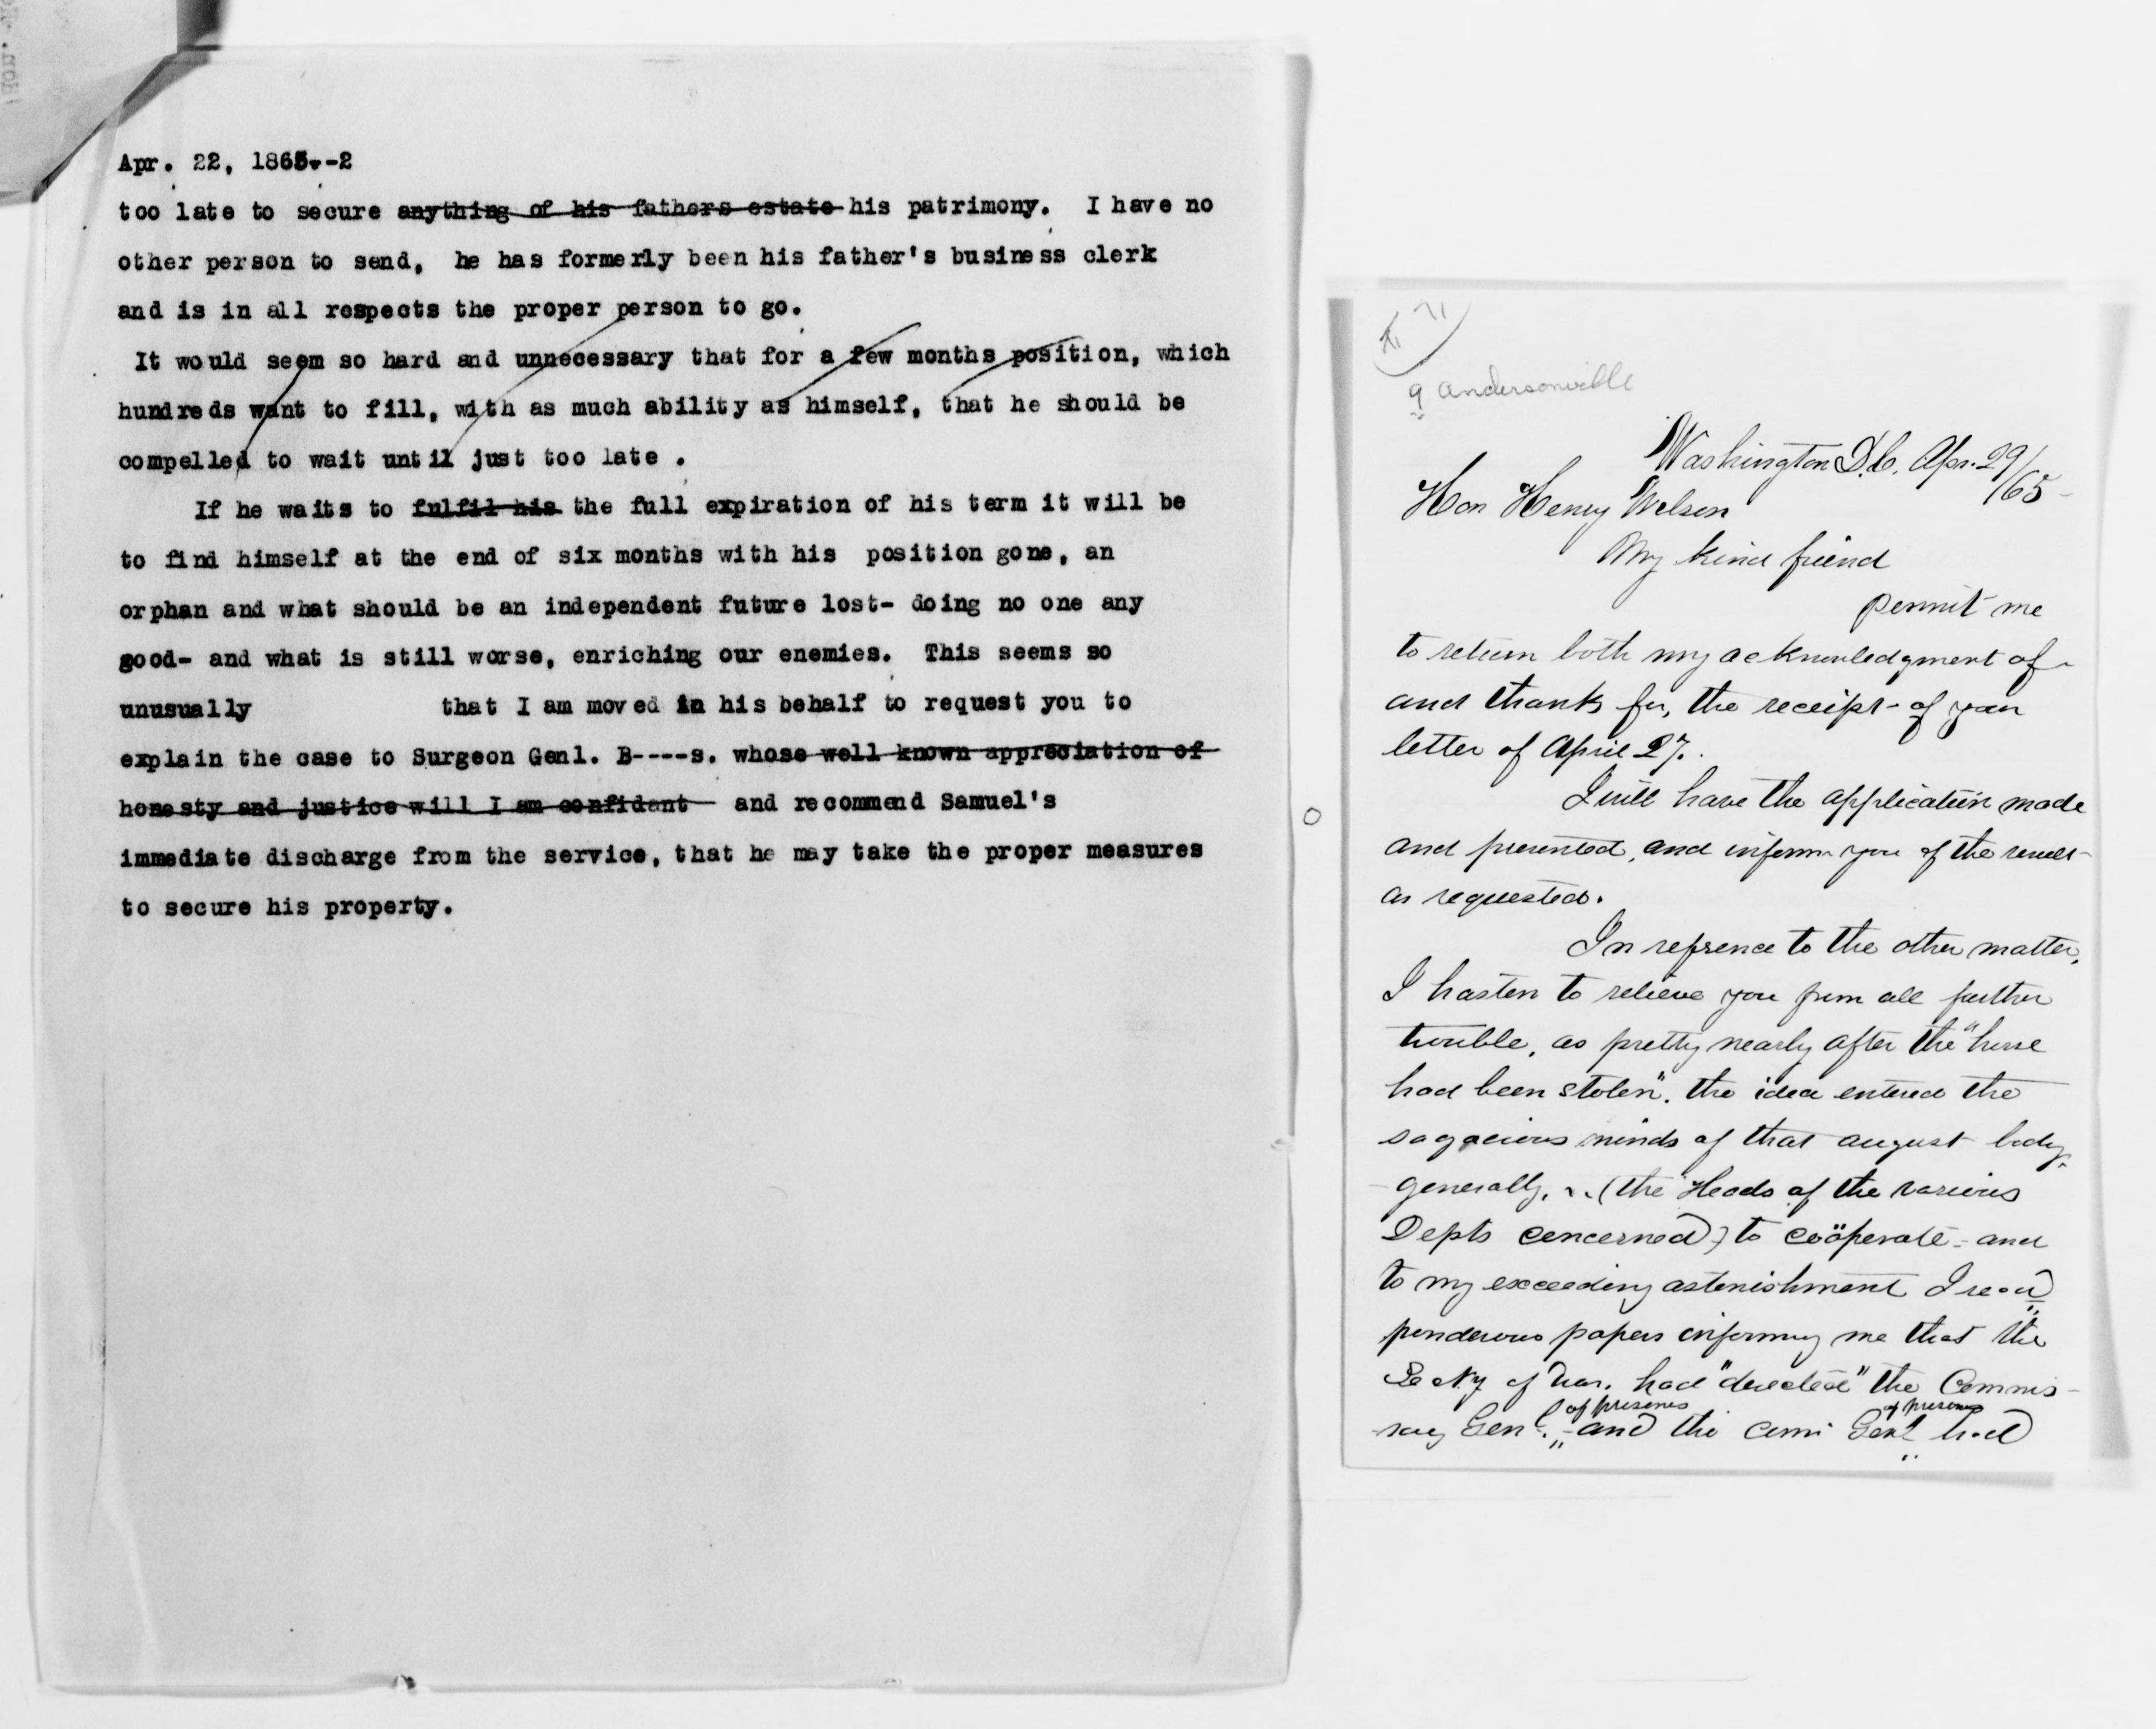 Apr. 22, 1865.-2
too late to secure anything of his fathers estate his patrimony. I have no
other person to send, he has formerly been his father's business clerk
and is in all respects the proper person to go.
It would seem so hard and unnecessary that for a few months position, which
hundreds want to fill, with as much ability as himself, that he should be
compelled to wait until just too late .
If he waits to fulfil his the full expiration of his term it will be
to find himself at the end of six months with his position gone, an
orphan and what should be an independent future lost- doing no one any
good- and what is still worse, enriching our enemies. This seems so
unusually that I am moved in his behalf to request you to
explain the case to Surgeon Genl. B----s. whose well known appreciation of
honesty and justice will I am confident and recommend Samuel's
immediate discharge from the service, that he may take the proper measures
to secure his property.
Andersonville
Washington D.C. Apr. 29/65
Hon Henry Wilson
My kind friend
permit me
to return both my acknowledgment of
and thanks for, the receipt of your
letter of April 27.
I will have the application made
and presented, and inform you of the result
as requested.
In refrence to the other matter,
I hasten to relieve you from all further
trouble, as pretty nearly after the "horse
had been stolen", the idea entered the
sagacious minds of that august body
generally, (the Heads of the various
Depts concerned) to coöperate - and
to my exceeding astonishment I read
ponderous papers informing me that the
Secty of War. had "directed" the Commis-
sary Genl. of prisoners and the Genl of prisoners had